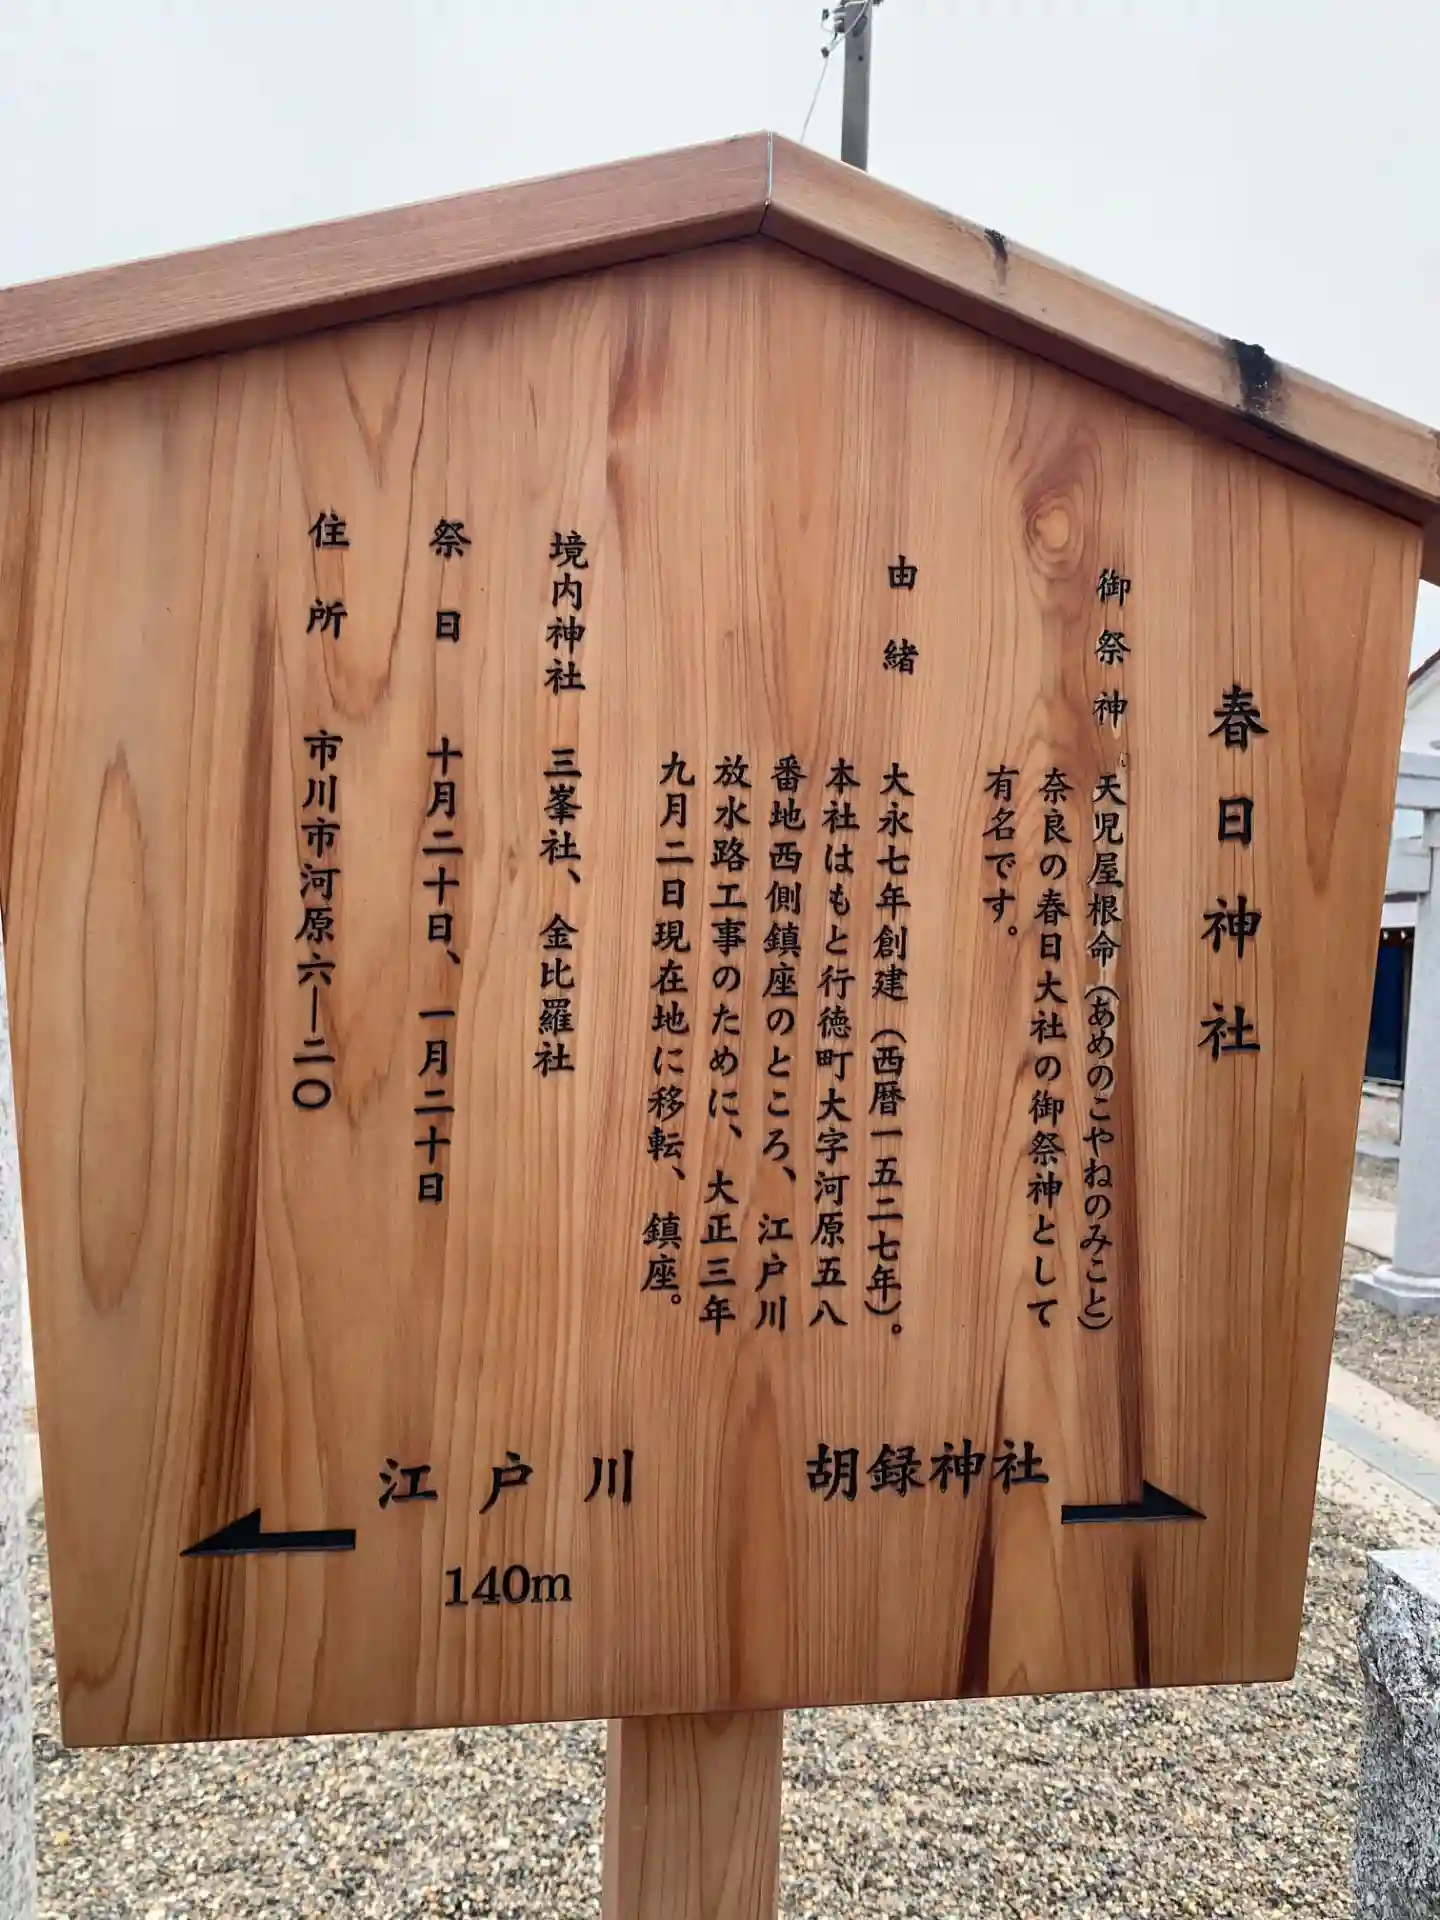 春日神社
御祭神 天児屋根命(あめのこやねのみこと)
奈良の春日大社の御祭神として
有名です。
由緒 大永七年創建(西暦一五二七年)。
本社はもと行徳町大字河原五八
番地西側鎮座のところ、江戸川
放水路工事のために、大正三年
九月二日現在地に移転、鎮座。
境内神社 三峯社、金比羅社
祭日 十月二十日、一月二十日
住所 市川市河原六―二〇
胡録神社
江戸川
140m